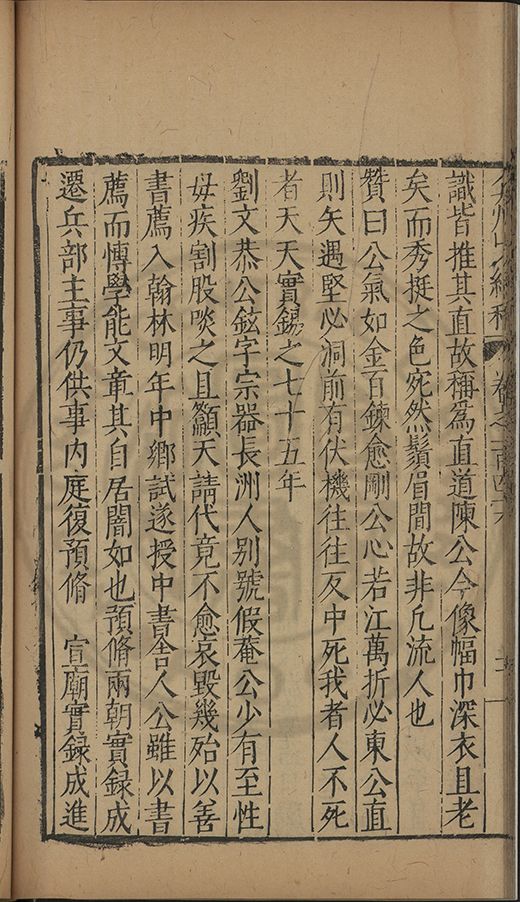 弇州山人續稿 卷之一百四十六
識皆推其直故稱爲直道陳公今像幅巾深衣且老
矣而秀挺之色宛然鬚眉間故非凡流人也
贊曰公氣如金百鍊愈剛公心若江萬折必東公直
則矢遇堅必洞前有伏機往往反中死我者人不死
者天天實錫之七十五年
劉文恭公鉉字宗器長洲人别號假菴公少有至性
母疾割股啖之且籲天請代竟不愈哀毀幾殆以善
書薦入翰林明年中鄉試遂授中書舍人公雖以書
薦而愽學能文章其自居闇如也預脩兩朝實録成
遷兵部主事仍供事内庭復預脩 宣廟實録成進